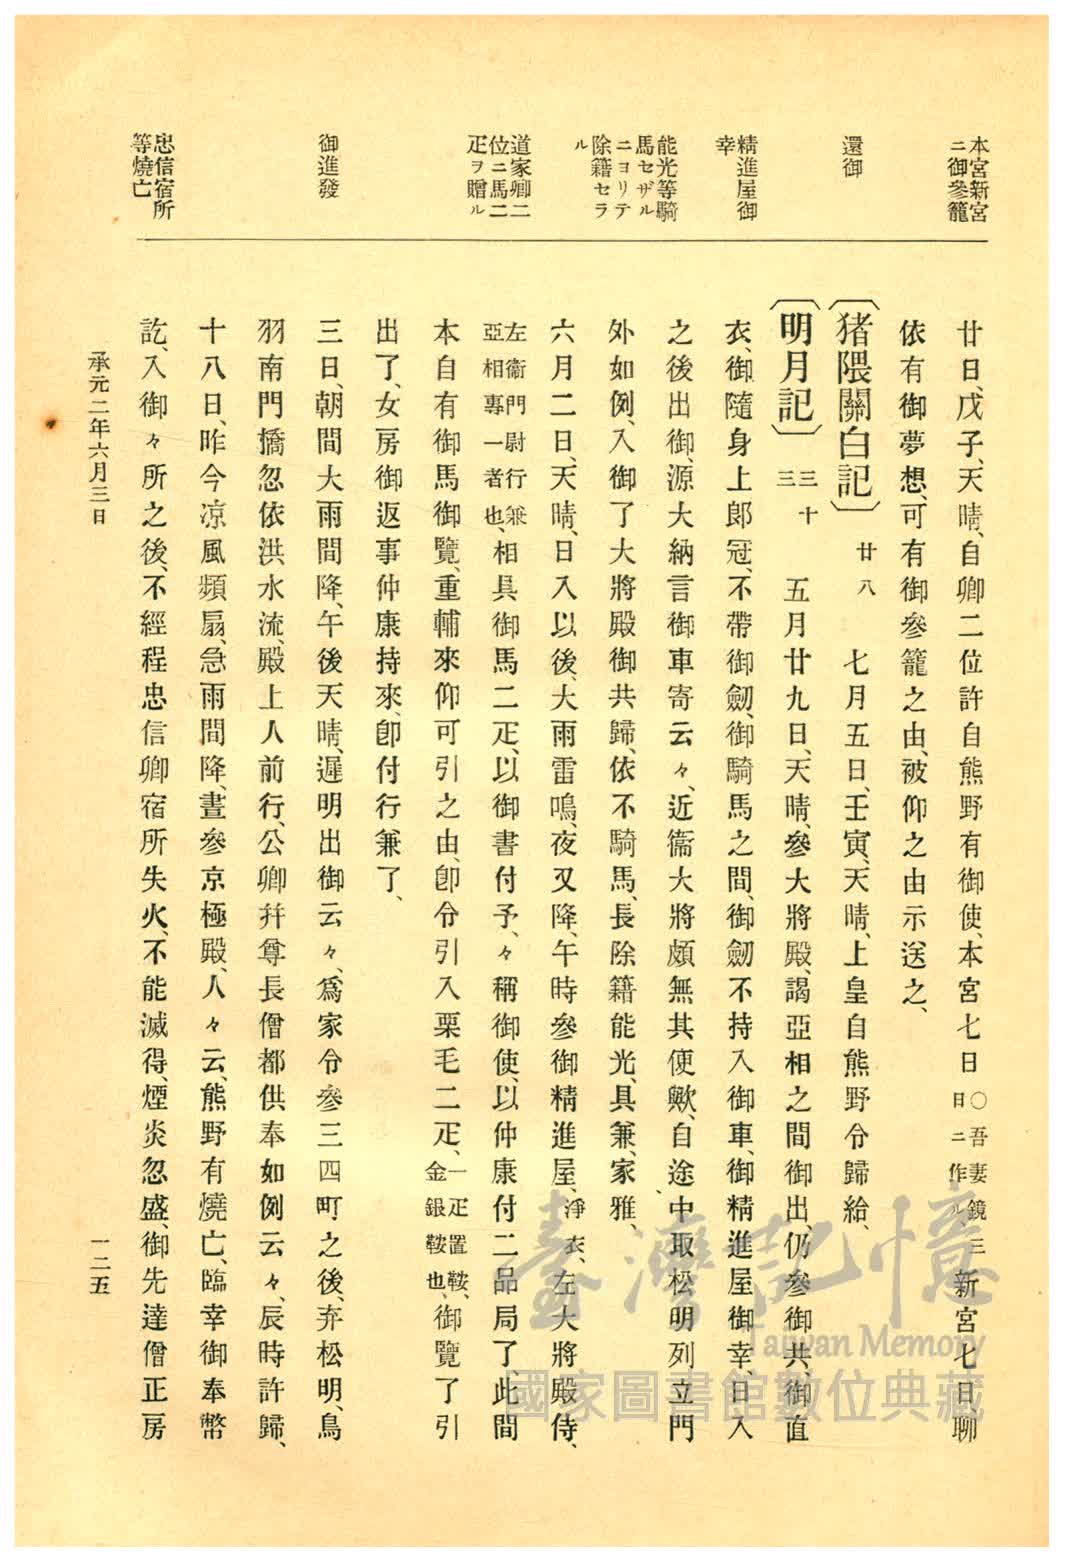 本宮新宮
ニ御參籠
還御
精進屋御
幸
能光等騎
馬セザル
ニヨリテ
除籍セラ
ル
道家卿二
位ニ馬二
疋ヲ贈ル
御進發
忠信宿所
等燒亡
廿日、戊子、天晴、自卿二位許自熊野有御使、本宮七日〇吾妻鏡、三日ニ作ル、新宮七日、聊
依有御夢想、可有御參籠之由、被仰之由示送之、
〔猪隈關白記〕 廿八 七月五日、壬寅、天晴、上皇自熊野令歸給、
〔明月記〕 三十三 五月廿九日、天晴、參大將殿、謁亞相之間御出、仍參御共、御直
衣、御隨身上郎冠、不帶御劔、御騎馬之間、御劔不持入御車、御精進屋御幸、日入
之後出御、源大納言御車寄云々、近衞大將頗無其便歟、自途中取松明列立門
外如例、入御了大將殿御共歸、依不騎馬、長除籍能光、具兼、家雅、
六月二日、天晴、日入以後、大雨雷鳴、夜又降、午時參御精進屋、淨衣、左大將殿侍、
左衞門尉行兼亞相專一者也、相具御馬二疋、以御書付予、々稱御使、以仲康付二品局了、此間
本自有御馬御覽、重輔來仰可引之由、卽令引入栗毛二疋、一疋置鞍、金銀鞍也、御覽了引
出了、女房御返事仲康持來、卽付行兼了、
三日、朝間大雨間降、午後天晴、遲明出御云々、爲家令參三四町之後、弃松明、鳥
羽南門撟忽依洪水流、殿上人前行、公卿幷尊長僧都供奉如例云々、辰時許歸、
十八日、昨今凉風頻扇、急雨間降、晝參京極殿、人々云、熊野有燒亡、臨幸御奉幣
訖、入御々所之後、不經程忠信卿宿所失火、不能滅得、煙炎忽盛、御先達僧正房
承元二年六月三日
一二五
臺灣記憶
Taiwan Memory
國家圖書館數位典藏